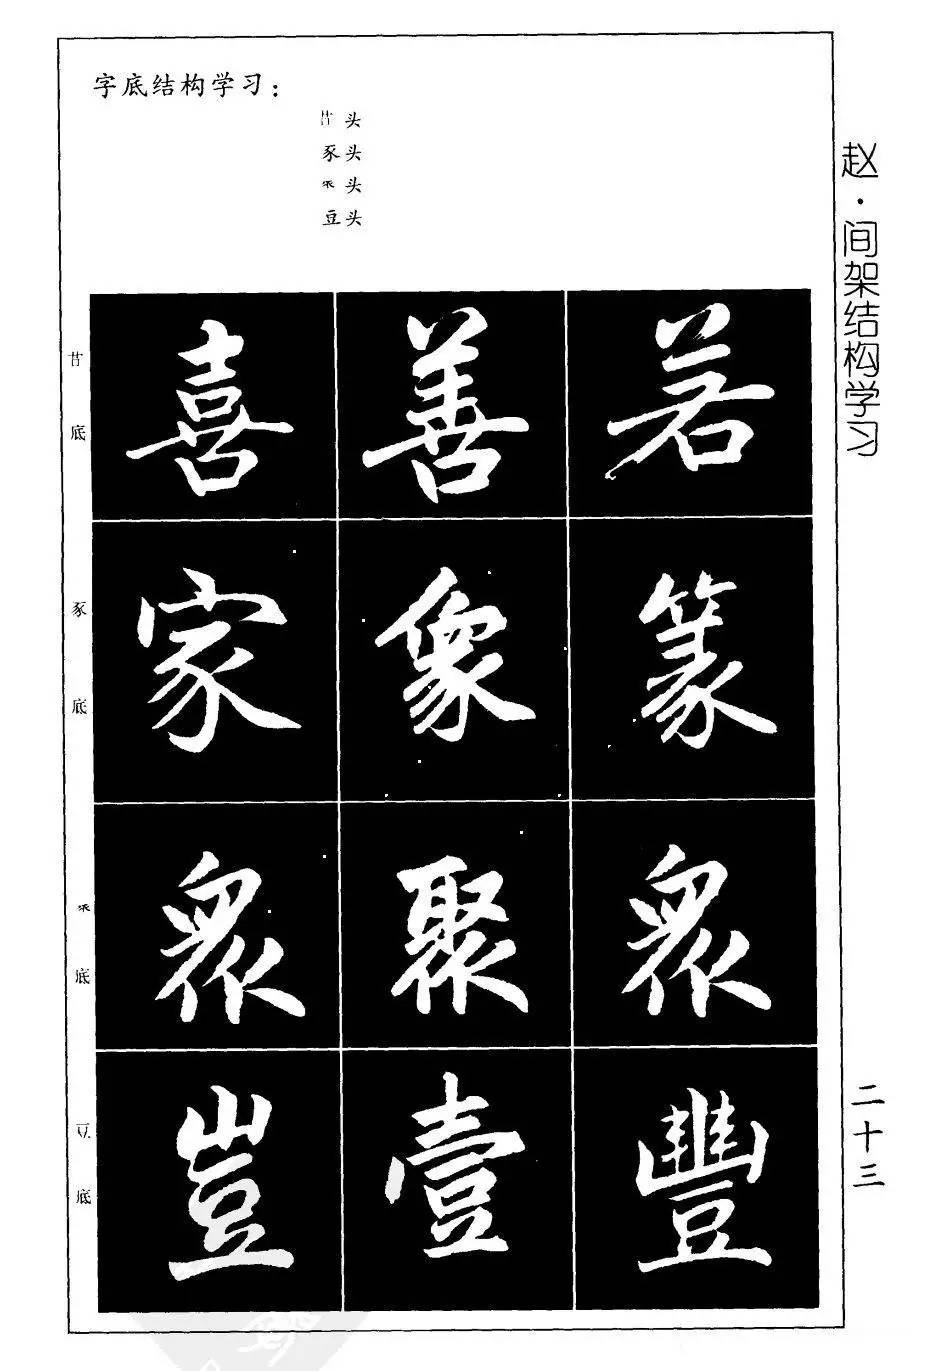 字底结构学习：
头
豕头
乑头
豆头
赵·间架结构学习
底
喜 善 若
豕底
家 象 篆
乑底
眾 聚 眾
豆底
豈 壹 豐
二十三